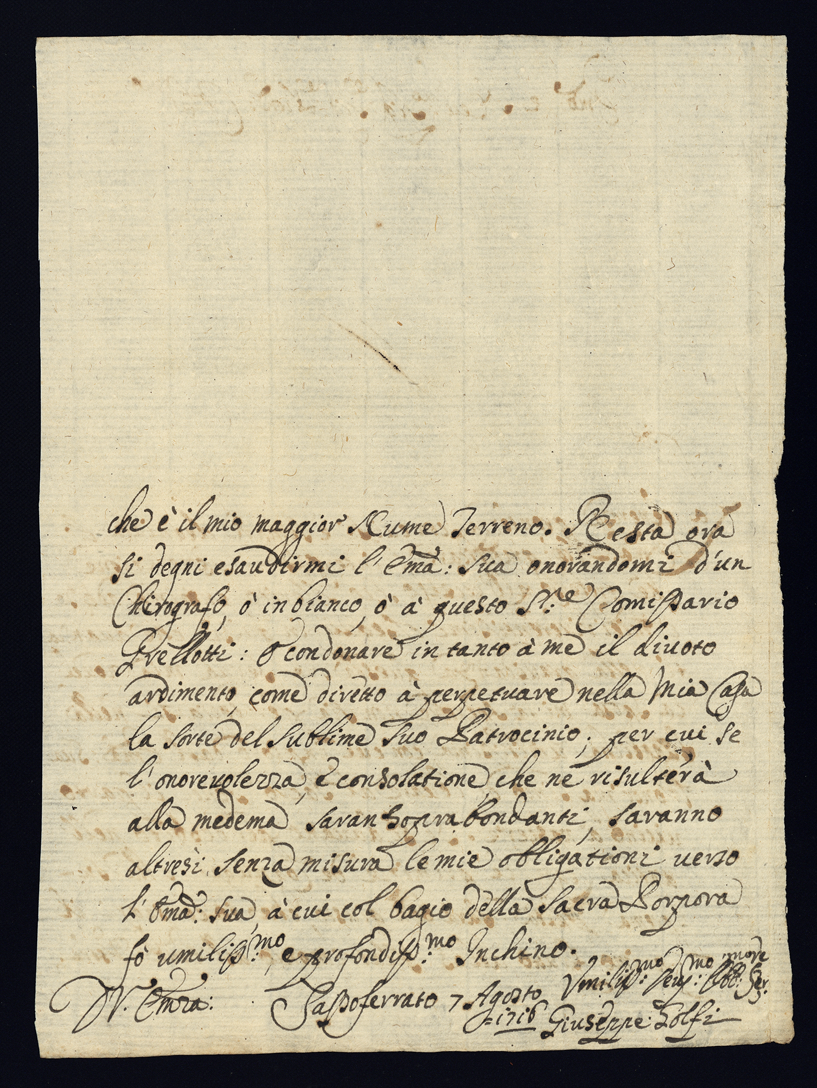 che è il mio maggior Nume Terreno. Resta ora
si degni esaudirmi l'Em̃a: sua onorandomi d'un
Chirografo, ò in bianco, ò à questo Sr.e Comissario
condonare in tanto à me il divoto
ardimento, come diretto à perpetuare nella Mia Casa
la sorte del sublime suo Patrocinio; per cui se
l'onorevolezza, e consolatione, che ne risulterà
alla medema saran soprabondanti, saranno
altresì senza misura le mie obligationi verso
l'Em̃a: sua, à cui col bagio della Sacra Porpora
fò umiliss.mo, e profondiss.mo Inchino.
Di V. Em̃za: Sassoferrato 7 Agosto
1716
Umiliss.mo Obb: Ser:
Giuseppe